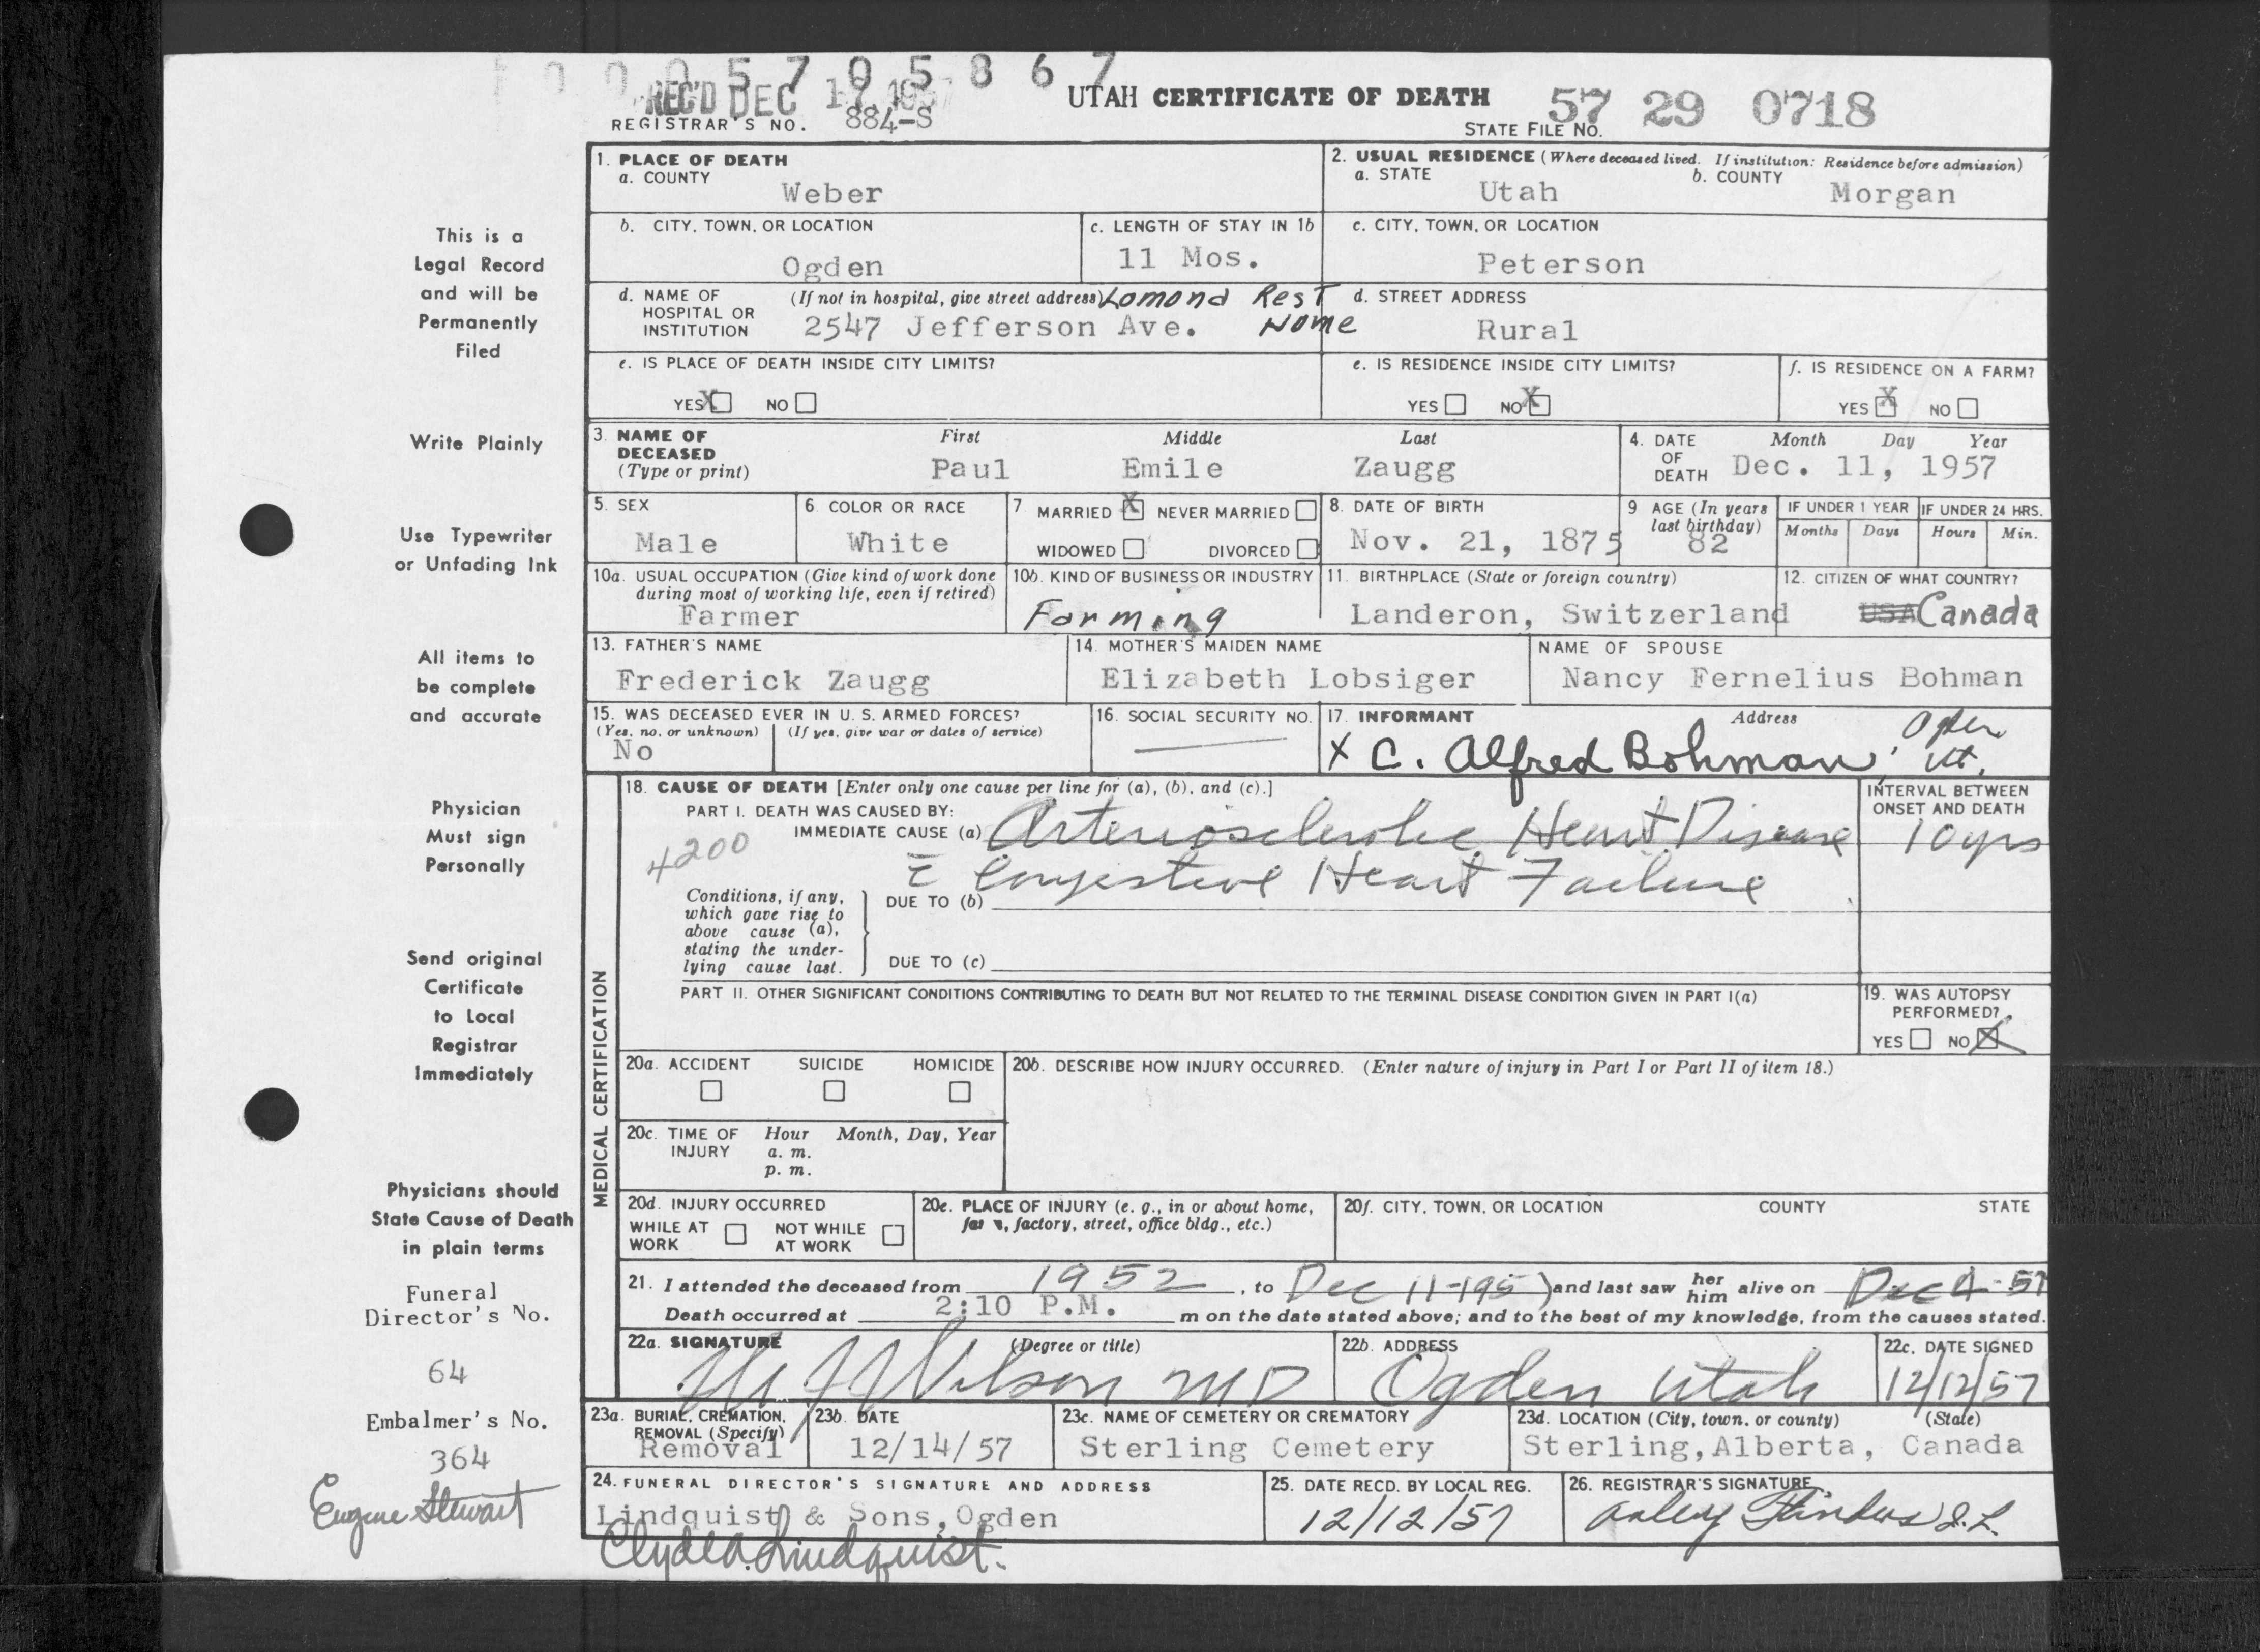 0 0 0 5 7 0 5 8 6 7
REC'D DEC 17 1957
REGISTRAR'S NO. 884-S
UTAH CERTIFICATE OF DEATH
STATE FILE NO. 57 29 0718
This is a
Legal Record
and will be
Permanently
Filed
Write Plainly
Use Typewriter
or Unfading Ink
All items to
be complete
and accurate
Physician
Must sign
Personally
Send original
Certificate
to Local
Registrar
Immediately
Physicians should
State Cause of Death
in plain terms
Funeral
Director's No.
64
Embalmer's No.
364
Eugene Stewart
1. PLACE OF DEATH
a. COUNTY
Weber
2. USUAL RESIDENCE (Where deceased lived. If institution: Residence before admission)
a. STATE
Utah
b. COUNTY
Morgan
b. CITY, TOWN, OR LOCATION
Ogden
c. LENGTH OF STAY IN 1b
11 Mos.
c. CITY, TOWN, OR LOCATION
Peterson
d. NAME OF HOSPITAL OR INSTITUTION
(If not in hospital, give street address) Lomond Rest Home
2547 Jefferson Ave.
d. STREET ADDRESS
Rural
e. IS PLACE OF DEATH INSIDE CITY LIMITS?
YES X NO
e. IS RESIDENCE INSIDE CITY LIMITS?
YES NO X
f. IS RESIDENCE ON A FARM?
YES X NO
3. NAME OF DECEASED (Type or print)
First Middle Last
Paul Emile Zaugg
4. DATE OF DEATH
Month Day Year
Dec. 11, 1957
5. SEX
Male
6 COLOR OR RACE
White
7 MARRIED X NEVER MARRIED
WIDOWED DIVORCED
8. DATE OF BIRTH
Nov. 21, 1875
9 AGE (In years last birthday)
82
IF UNDER 1 YEAR
Months Days
IF UNDER 24 HRS.
Hours Min.
10a. USUAL OCCUPATION (Give kind of work done during most of working life, even if retired)
Farmer
10b. KIND OF BUSINESS OR INDUSTRY
Farming
11. BIRTHPLACE (State or foreign country)
Landeron, Switzerland
12. CITIZEN OF WHAT COUNTRY?
USA Canada
13. FATHER'S NAME
Frederick Zaugg
14. MOTHER'S MAIDEN NAME
Elizabeth Lobsiger
NAME OF SPOUSE
Nancy Fernelius Bohman
15. WAS DECEASED EVER IN U. S. ARMED FORCES?
(Yes, no, or unknown) (If yes, give war or dates of service)
No
16. SOCIAL SECURITY NO.
17. INFORMANT Address
X C. Alfred Bohman, Ogden Ut.
MEDICAL CERTIFICATION
18. CAUSE OF DEATH [Enter only one cause per line for (a), (b), and (c).]
PART I. DEATH WAS CAUSED BY:
IMMEDIATE CAUSE (a) Arteriosclerotic Heart Disease
4200
c̄ Congestive Heart Failure
INTERVAL BETWEEN ONSET AND DEATH
10 yrs
Conditions, if any, which gave rise to above cause (a), stating the underlying cause last.
DUE TO (b)
DUE TO (c)
PART II. OTHER SIGNIFICANT CONDITIONS CONTRIBUTING TO DEATH BUT NOT RELATED TO THE TERMINAL DISEASE CONDITION GIVEN IN PART I(a)
19. WAS AUTOPSY PERFORMED?
YES NO X
20a. ACCIDENT SUICIDE HOMICIDE
20b. DESCRIBE HOW INJURY OCCURRED. (Enter nature of injury in Part I or Part II of item 18.)
20c. TIME OF INJURY
Hour Month, Day, Year
a. m.
p. m.
20d. INJURY OCCURRED
WHILE AT WORK NOT WHILE AT WORK
20e. PLACE OF INJURY (e. g., in or about home, farm, factory, street, office bldg., etc.)
20f. CITY, TOWN, OR LOCATION COUNTY STATE
21. I attended the deceased from 1952, to Dec 11-1957 and last saw her him alive on Dec 4-57
Death occurred at 2:10 P.M. m on the date stated above; and to the best of my knowledge, from the causes stated.
22a. SIGNATURE (Degree or title)
Wilson MD
22b. ADDRESS
Ogden Utah
22c. DATE SIGNED
12/12/57
23a. BURIAL, CREMATION, REMOVAL (Specify)
Removal
23b. DATE
12/14/57
23c. NAME OF CEMETERY OR CREMATORY
Sterling Cemetery
23d. LOCATION (City, town, or county) (State)
Sterling, Alberta, Canada
24. FUNERAL DIRECTOR'S SIGNATURE AND ADDRESS
Lindquist & Sons, Ogden
Clyde A. Lindquist.
25. DATE RECD. BY LOCAL REG.
12/12/57
26. REGISTRAR'S SIGNATURE